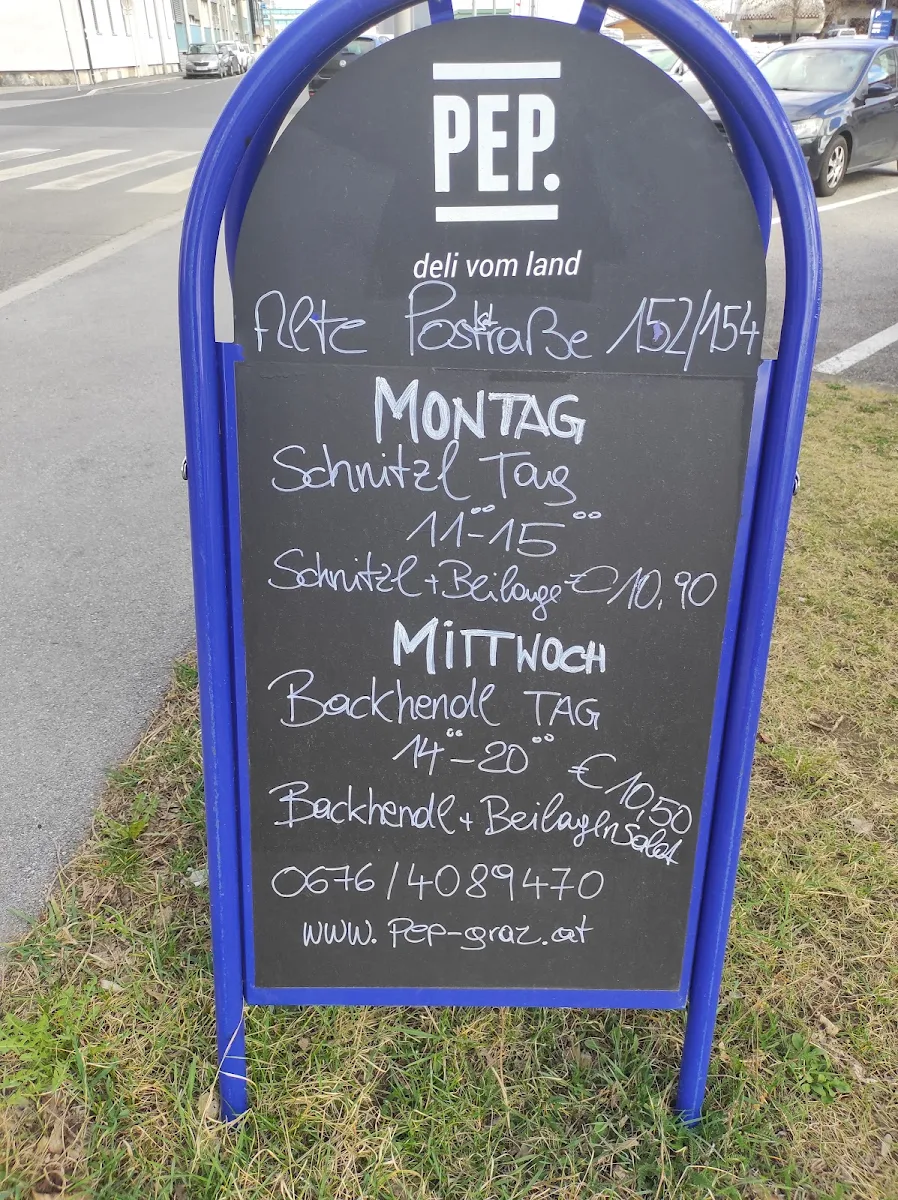 PEP.
deli vom land
Alte Poststraße 152/154
MONTAG
Schnitzl Tag
11⁰⁰-15⁰⁰
Schnitzl+Beilage €10,90
MITTWOCH
Backhendl TAG
14⁰⁰-20⁰⁰
€10,50
Backhendl+Beilagensalat
0676/4089470
www.pep-graz.at